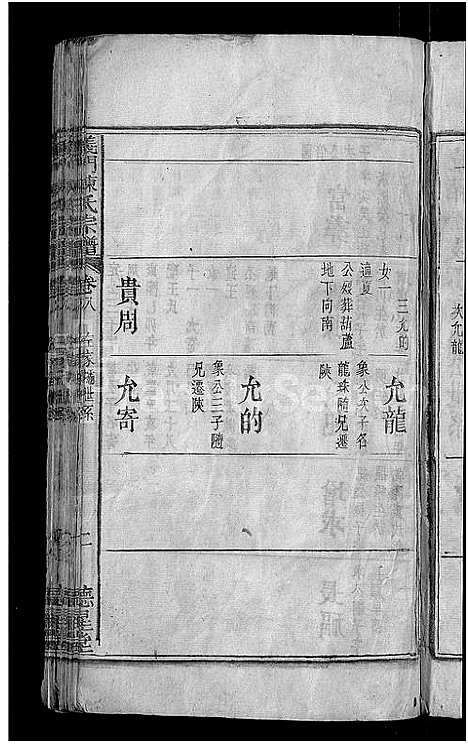 次允龍
三允的
女一
適夏
公媭葬葫蘆
地下向南
貴周
允龍
象公次子名
龍珠隨兄遷
陝
允的
象公三子隨
兄遷陝
允寄
義門陳氏宗譜
卷八
世系
德星堂